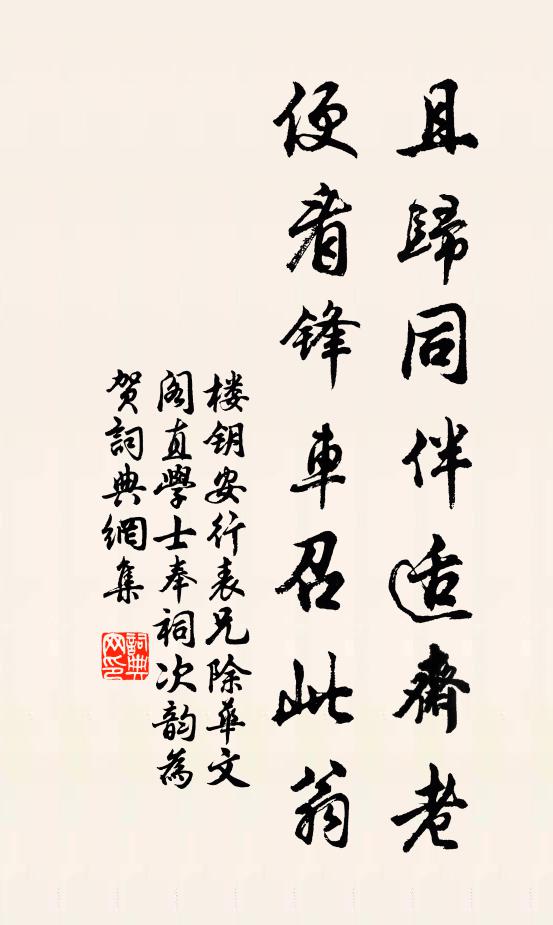 且歸同伴适齋老
便看鋒車召此翁
楼钥安行表兄除華文
阁直學士奉祠次韵為
贺詞典網集
詞典网印